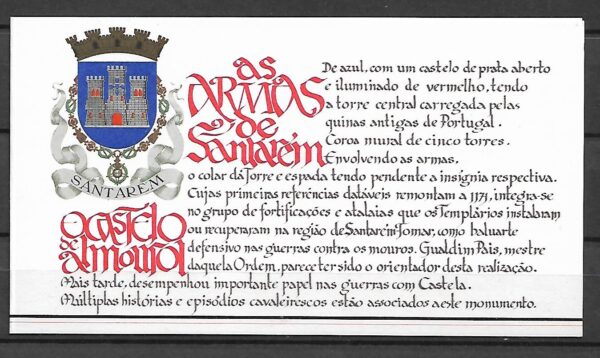 SANTARÉM
as
ARMAS
de
Santarém
De azul, com um castelo de prata aberto
e iluminado de vermelho, tendo
a torre central carregada pelas
quinas antigas de Portugal.
Coroa mural de cinco torres.
Envolvendo as armas.
o colar da Torre e espada tendo pendente a insígnia respectiva.
O CASTELO
de
almourol
Cujas primeiras referências datáveis remontam a 1171, integra-se
no grupo de fortificações e atalaias que os Templários instalaram
ou recuperaram na região de Santarém-Tomar, como baluarte
defensivo nas guerras contra os mouros. Gualdim Pais, mestre
daquela Ordem, parece ter sido o orientador desta realização.
Mais tarde, desempenhou importante papel nas guerras com Castela.
Múltiplas histórias e episódios cavaleirescos estão associados a este monumento.